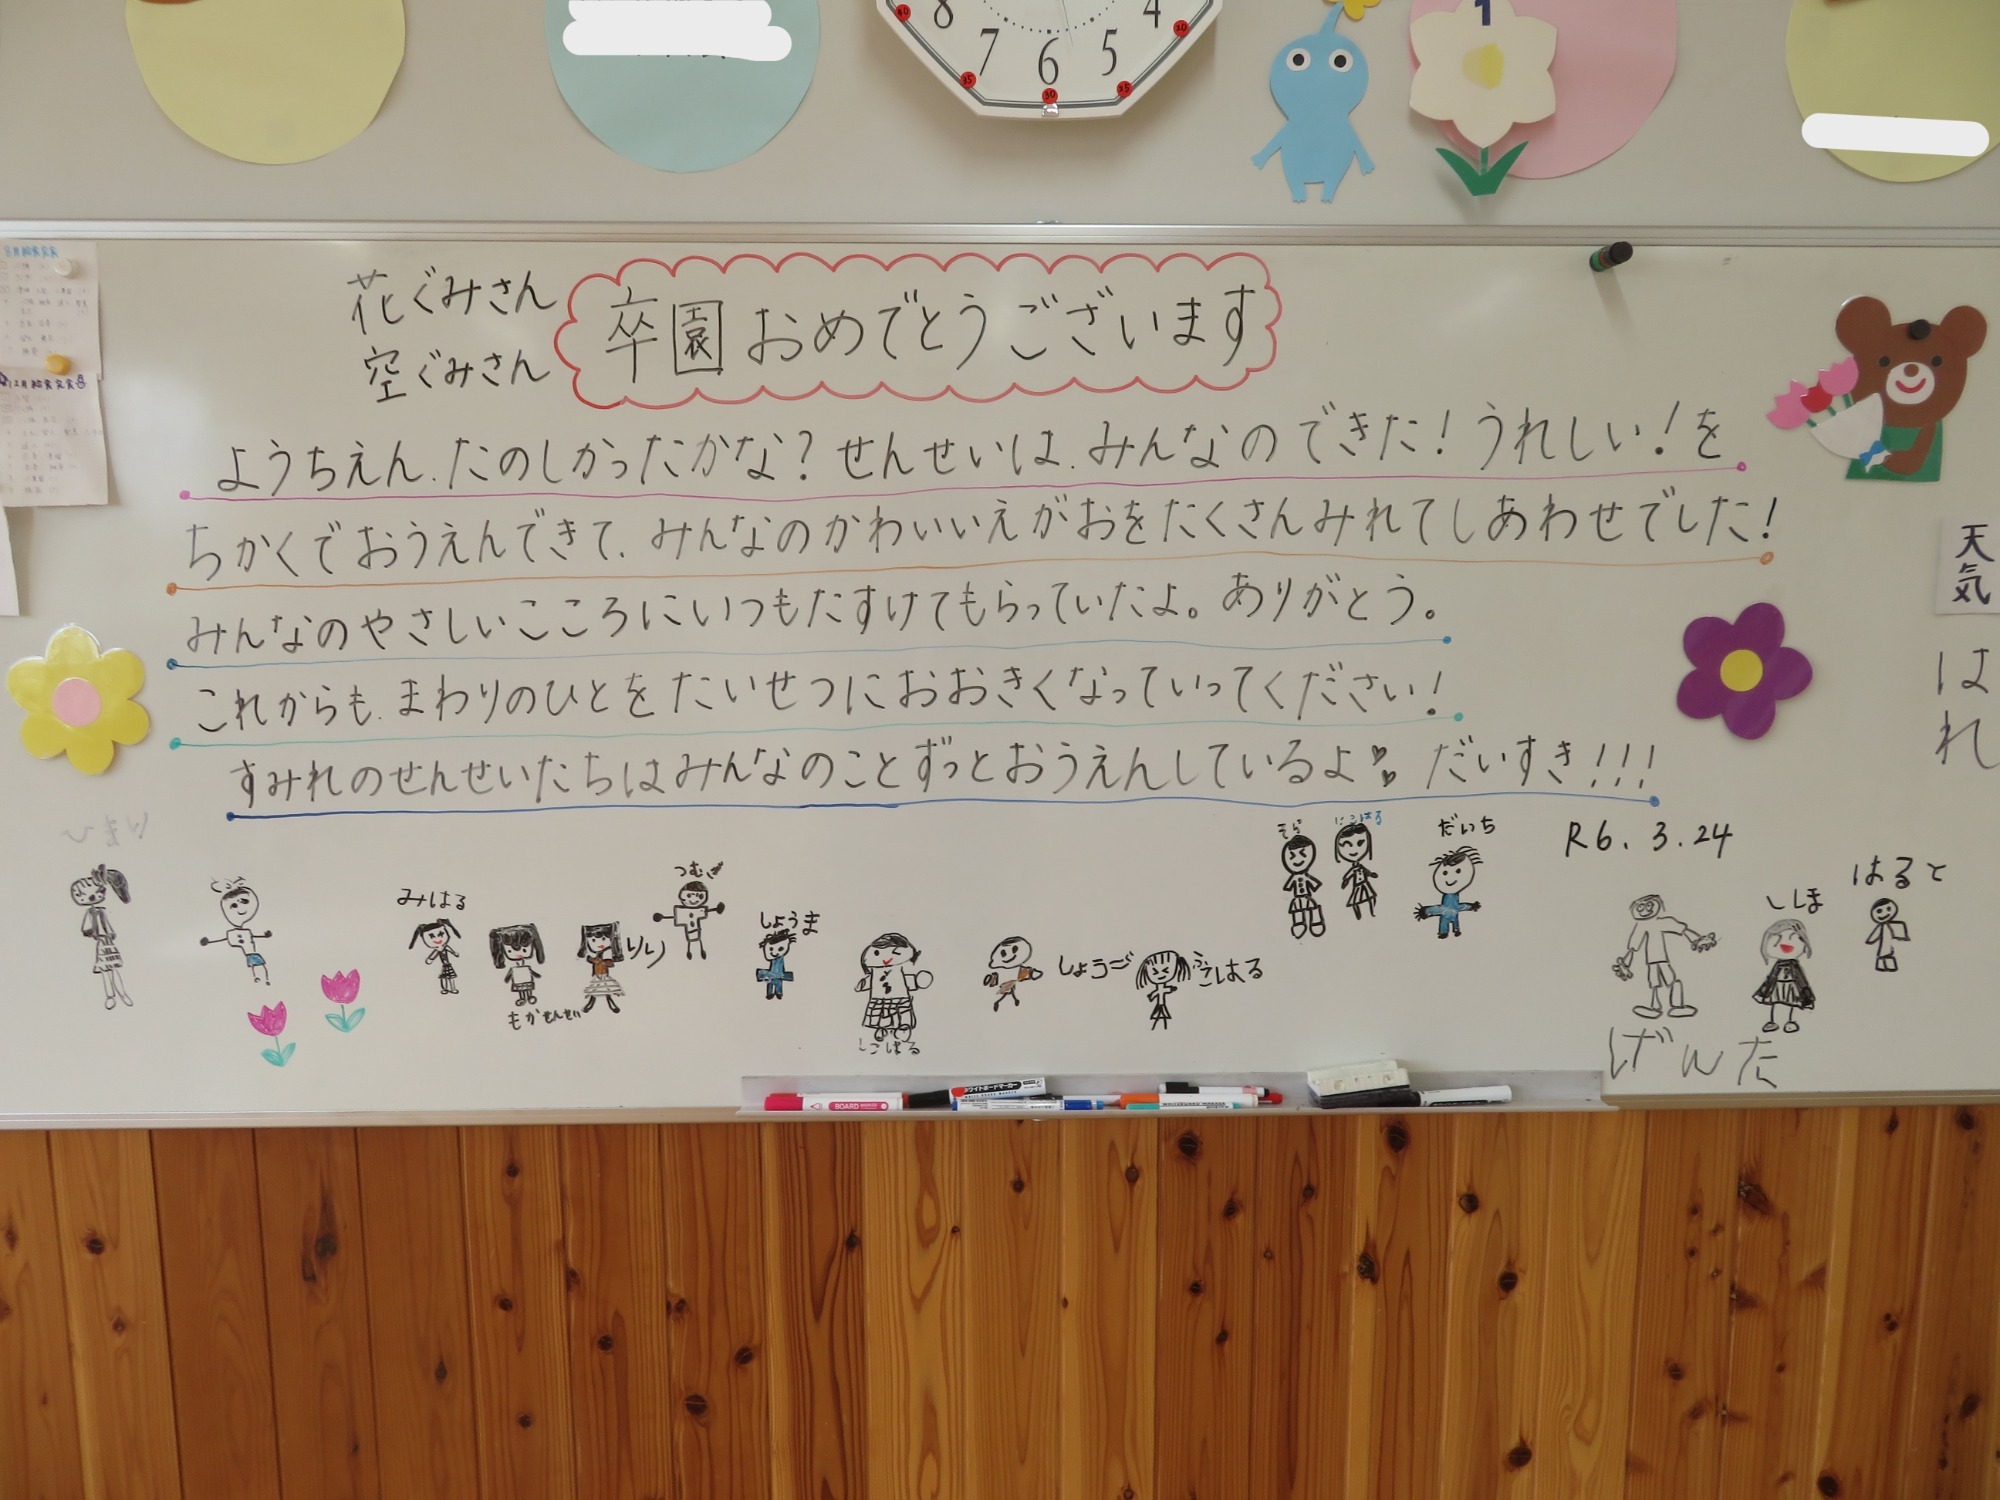 8
7
6
5
4
40
35
30
25
20
1
花ぐみさん
空ぐみさん
卒園おめでとうございます
ようちえん、たのしかったかな?せんせいは、みんなのできた!うれしい!を
ちかくでおうえんできて、みんなのかわいいえがおをたくさんみれてしあわせでした!
みんなのやさしいこころにいつもたすけてもらっていたよ。ありがとう。
これからも、まわりのひとをたいせつにおおきくなっていってください!
すみれのせんせいたちはみんなのことずっとおうえんしているよ だいすき!!!
天気
はれ
R6.3.24
みはる
もかせんせい
りり
つむぎ
しょうま
しょうご
そら
にこはる
だいち
ししほ
はると
げんた
BOARD MARKER
ホワイトボードマーカー